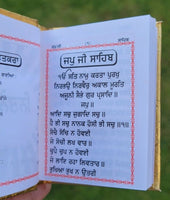 ਜਪੁ ਜੀ ਸਾਹਿਬ
ੴ ਸਤਿ ਨਾਮੁ ਕਰਤਾ ਪੁਰਖੁ
ਨਿਰਭਉ ਨਿਰਵੈਰੁ ਅਕਾਲ ਮੂਰਤਿ
ਅਜੂਨੀ ਸੈਭੰ ਗੁਰ ਪ੍ਰਸਾਦਿ॥
ਜਪੁ॥
ਆਦਿ ਸਚੁ ਜੁਗਾਦਿ ਸਚੁ॥
ਹੈ ਭੀ ਸਚੁ ਨਾਨਕ ਹੋਸੀ ਭੀ ਸਚੁ॥੧॥
ਸੋਚੈ ਸੋਚਿ ਨ ਹੋਵਈ
ਜੇ ਸੋਚੀ ਲਖ ਵਾਰ॥
ਚੁਪੈ ਚੁਪ ਨ ਹੋਵਈ
ਜੇ ਲਾਇ ਰਹਾ ਲਿਵਤਾਰ॥
ਭੁਖਿਆ ਭੁਖ ਨ ਉਤਰੀ